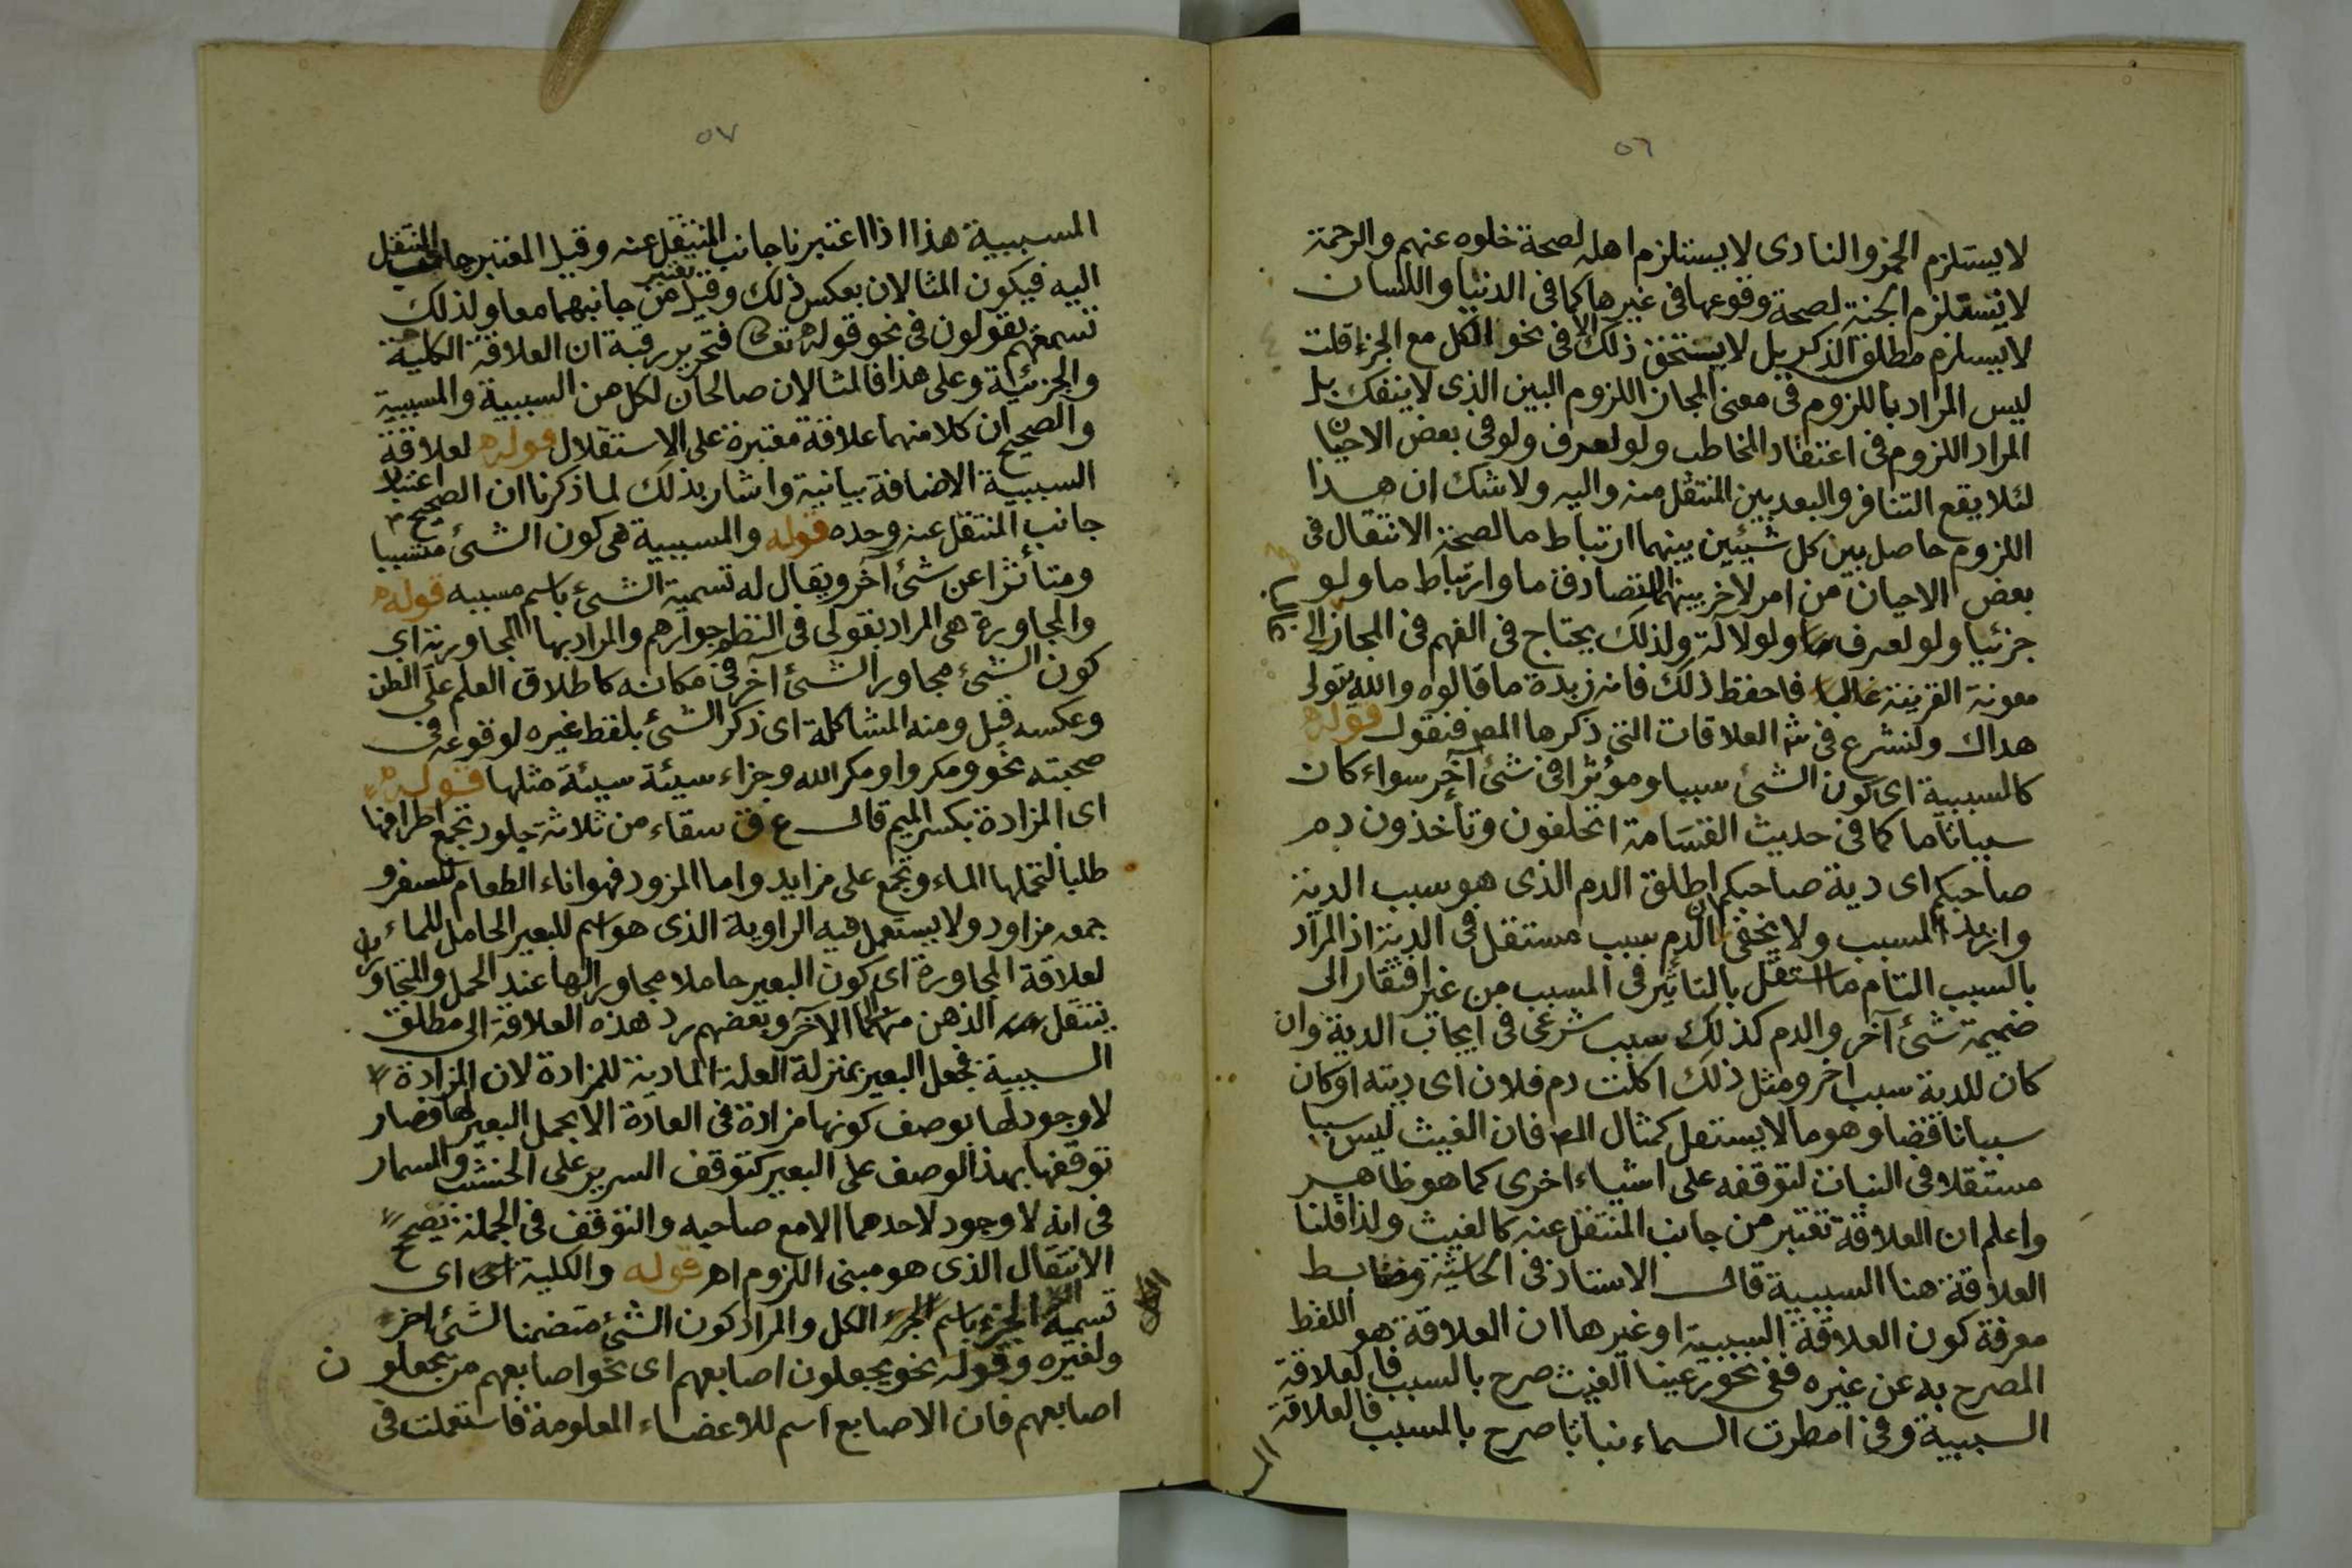 ٥٦
لا يستلزم الخمر والنادى لا يستلزم اهله لصحة خلوه عنهم والرحمة
لا تستلزم الجنة لصحة وقوعها فى غيرها كما فى الدنيا واللسان
لا يستلزم مطلق الذكر بل لا يستحق ذلك الا فى نحو الكل مع الجزء قلت
ليس المراد باللزوم فى معنى المجاز اللزوم البين الذى لا ينفك بل
المراد اللزوم فى اعتقاد المخاطب ولو لعرف ولو فى بعض الاحيان
لئلا يقع التنافر والبعد بين المنتقل منه واليه ولا شك ان هذا
اللزوم حاصل بين كل شيئين بينهما ارتباط ما لصحة الانتقال فى
بعض الاحيان من امر لآخر بينهما تصادق ما وارتباط ما ولو
جزئيا ولو لعرف ولو لا لة ولذلك يحتاج فى الفهم فى المجاز الى
معونة القرينة غالبا فاحفظ ذلك فانه زبدة ما قالوه والله يتولى
هداك ولنشرع فى العلاقات التى ذكرها المص فنقول قوله
كالسببية اى كون الشئ سببا ومؤثرا فى شئ آخر سواء كان
سببا تاما كما فى حديث القسامة اتحلفون وتأخذون دم
صاحبكم اى دية صاحبكم اطلق الدم الذى هو سبب الدية
واريد المسبب ولا يخفى ان الدم سبب مستقل فى الدية اذ المراد
بالسبب التام ما استقل بالتاثير فى المسبب من غير افتقار الى
ضميمة شئ آخر والدم كذلك سبب شرعى فى ايجاب الدية وان
كان للدية سبب اخر ومثل ذلك اكلت دم فلان اى ديته او كان
سببا ناقصا وهو ما لا يستقل كمثال المص فان الغيث ليس سببا
مستقلا فى النبات لتوقفه على اشياء اخرى كما هو ظاهر
واعلم ان العلاقة تعتبر من جانب المنتقل عنه كالغيث ولذا قلنا
العلاقة هنا السببية قال الاستاذ فى الحاشية وضابط
معرفة كون العلاقة السببية او غيرها ان العلاقة هو اللفظ
المصرح به عن غيره ففى نحو رعينا الغيث صرح بالسبب فالعلاقة
السببية وفى امطرت السماء نباتا صرح بالمسبب فالعلاقة
المسـ
٥٧
المسببية هذا اذا اعتبرنا جانب المنتقل عنه وقيل المعتبر جانب المنتقل
اليه فيكون المثالان بعكس ذلك وقيل تعتبر من جانبهما معا ولذلك
تسمعهم يقولون فى نحو قوله تعا فتحرير رقبة ان العلاقة الكلية
والجزئية وعلى هذا فالمثالان صالحان لكل من السببية والمسببية
والصحيح ان كلا منهما علاقة معتبرة على الاستقلال قوله لعلاقة
السببية الاضافة بيانية واشار بذلك لما ذكرنا ان الصحيح اعتبار
جانب المنتقل عنه وحده قوله والمسببية هى كون الشئ مسببا
ومتأثرا عن شئ آخر ويقال له تسمية الشئ باسم مسببه قوله
والمجاورة هى المراد بقولى فى النظم جوارهم والمراد بها المجاورية اى
كون الشئ مجاورا لشئ آخر فى مكانه كاطلاق العلم على الظن
وعكسه قيل ومنه المشاكلة اى ذكر الشئ بلفظ غيره لوقوعه فى
صحبته نحو ومكروا ومكر الله وجزاء سيئة سيئة مثلها قوله
اى المزادة بكسر الميم قال ع ق سقاء من ثلاثة جلود تجمع اطرافها
طلبا لتحملها الماء وتجمع على مزايد واما المزود فهو اناء الطعام للسفر و
جمعه مزاود ولا يستعمل فيه الراوية الذى هو اسم للبعير الحامل للماء
لعلاقة المجاورة اى كون البعير حاملا مجاورا لها عند الحمل والمتجاوران
ينتقل الذهن من احدهما الى الآخر وبعضهم رد هذه العلاقة الى مطلق
السببية بجعل البعير بمنزلة العلة المادية للمزادة لان المزادة
لا وجود لها بوصف كونها مزادة فى العادة الا بحمل البعير لها فصار
توقفها بهذا الوصف على البعير كتوقف السرير على الخشب والمسمار
فى انه لا وجود لاحدهما الا مع صاحبه والتوقف فى الجملة يصح
الانتقال الذى هو مبنى اللزوم اهـ قوله والكلية اى
تسمية الجزء باسم الكل والمراد كون الشئ متضمنا لشئ اخر
ولغيره وقوله نحو يجعلون اصابعهم اى نحو اصابعهم من يجعلون
اصابعهم فان الاصابع اسم للاعضاء المعلومة فاستعملت فى